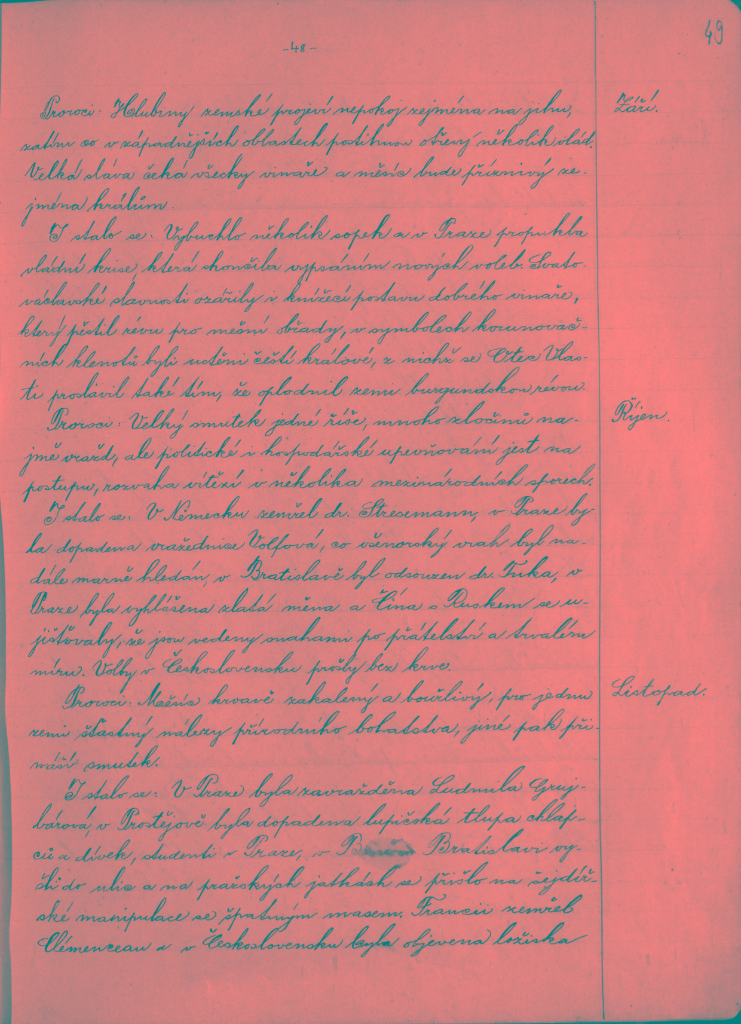 49
-48-
Proroci: Hlubiny zemské projeví nepokoj zejména na jihu, Září.
zatím co v západnějších oblastech postihnou otřesy několik vlád.
Velká sláva čeká všecky vinaře a měsíc bude příznivý ze-
jména králům.
I stalo se: Vybuchlo několik sopek a v Praze propukla
vládní krise, která skončila vypsáním nových voleb. Svato-
václavské slavnosti ozářily i knížecí postavu dobrého vinaře,
který pěstil révu pro mešní obřady, v symbolech korunovač-
ních klenotů byli uctěni čeští králové, z nichž se Otec Vlas-
ti proslavil také tím, že oplodnil zemi burgundskou révou.
Proroci: Velký smutek jedné říše, mnoho zločinů na- Říjen.
jmě vražd, ale politické i hospodářské upevňování jest na
postupu, rozvaha vítězí v několika mezinárodních sporech.
I stalo se: V Německu zemřel dr. Stresemann, v Praze by-
la dopadena vražednice Volfová, co všenorský vrah byl na-
dále marně hledán, v Bratislavě byl odsouzen dr. Tuka, v
Praze byla vyhlášena zlatá měna a Čína s Ruskem se u-
jišťovaly, že jsou vedeny snahami po přátelství a trvalém
míru. Volby v Československu prošly bez krve.
Proroci: Měsíc krvavě zakalený a bouřlivý, pro jednu Listopad.
zemi šťastný nálezy přírodního bohatstva, jiné pak při-
náší smutek.
I stalo se: V Praze byla zavražděna Ludmila Gruj-
bárová, v Prostějově byla dopadena lupičská tlupa chlap-
ců a dívek, studenti v Praze, v Bratislavi vy-
šli do ulic a na pražských jatkách se přišlo na šejdíř-
ské manipulace se špatným masem. Francii zemřel
Clémenceau a v Československu byla objevena ložiska